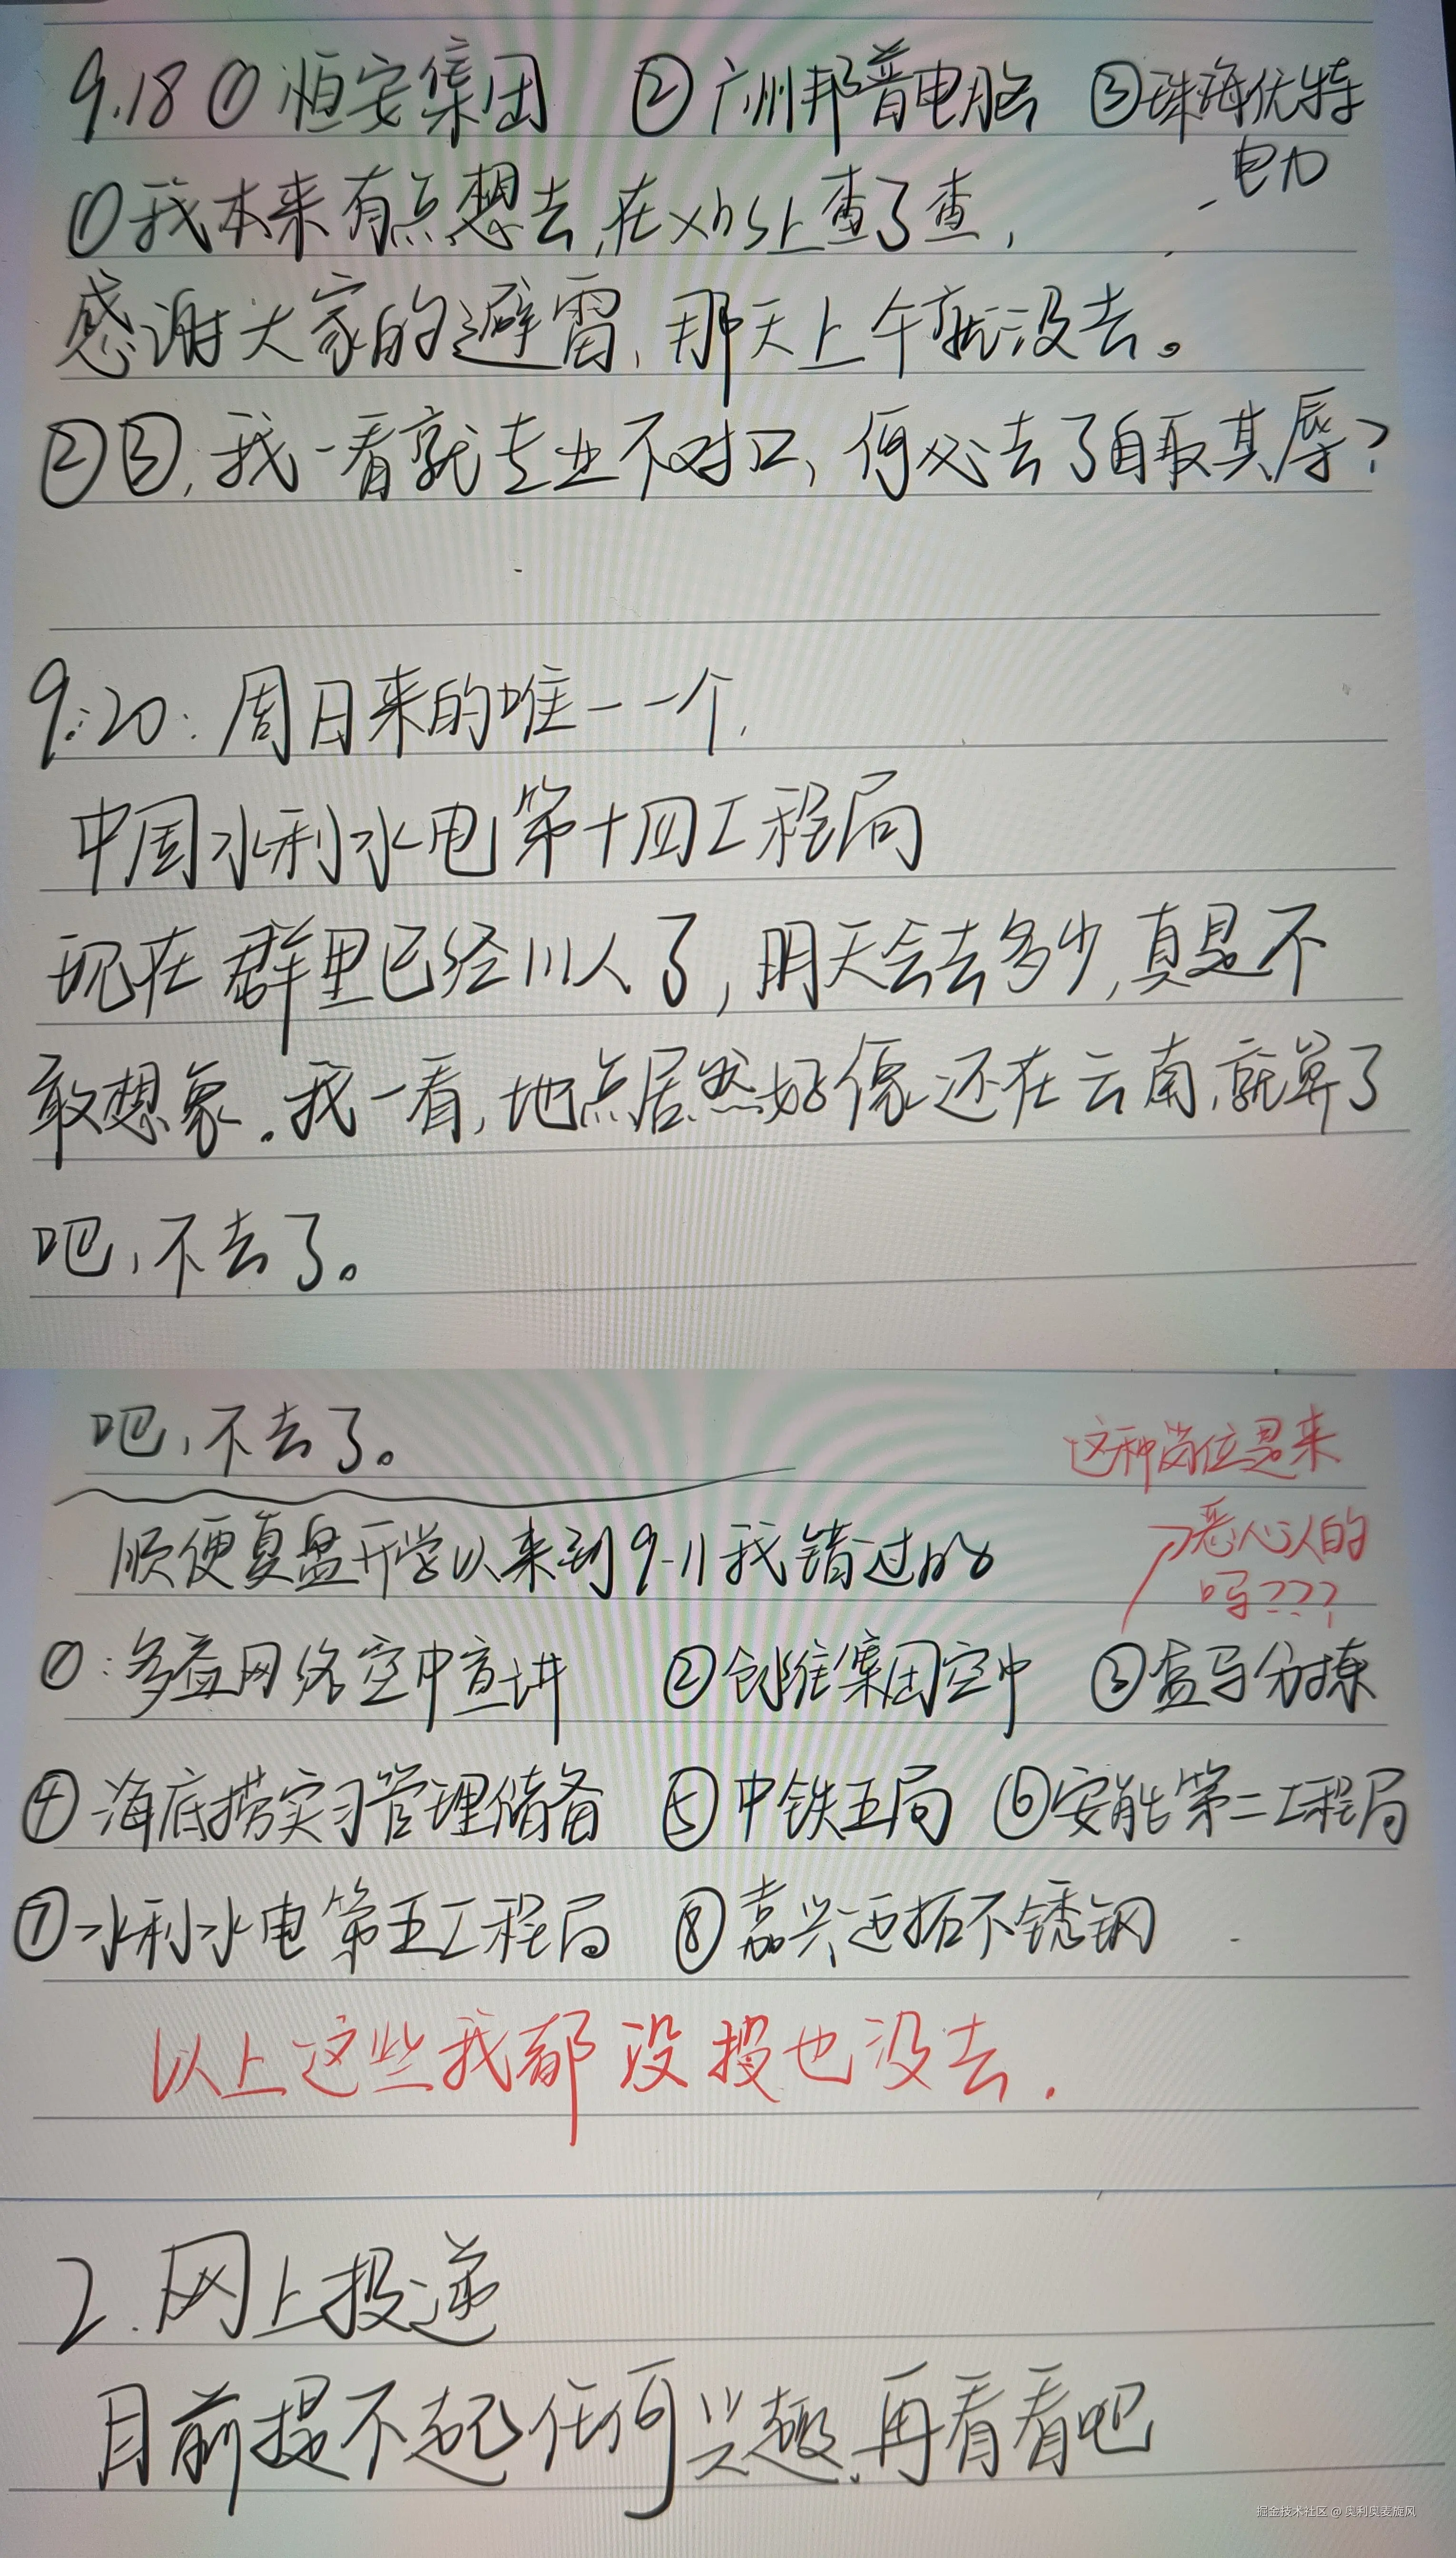 9.18 ①恒安集团 ②广州邦普电脑 ③珠海优特
电力
①我本来有点想去,在xhs上查了查,
感谢大家的避雷,那天上午就没去。
②③,我一看就专业不对口,何必去了自取其辱?
9.20:周日来的唯一一个,
中国水利水电第十四工程局
现在群里已经111人了,明天会去多少,真是不
敢想象.我一看,地点居然好像还在云南,就算了
吧,不去了。
吧,不去了。
这种岗位是来
恶心人的
吗???
顺便复盘开学以来到9-11我错过的
①:多益网络空中宣讲 ②创维集团空中 ③盒马分拣
④海底捞实习管理储备 ⑤中铁五局 ⑥安能第二工程局
⑦水利水电第五工程局 ⑧嘉兴迈拓不锈钢
以上这些我都没投也没去.
2.网上投递
目前提不起任何兴趣,再看看吧
掘金技术社区 @ 奥利奥麦旋风